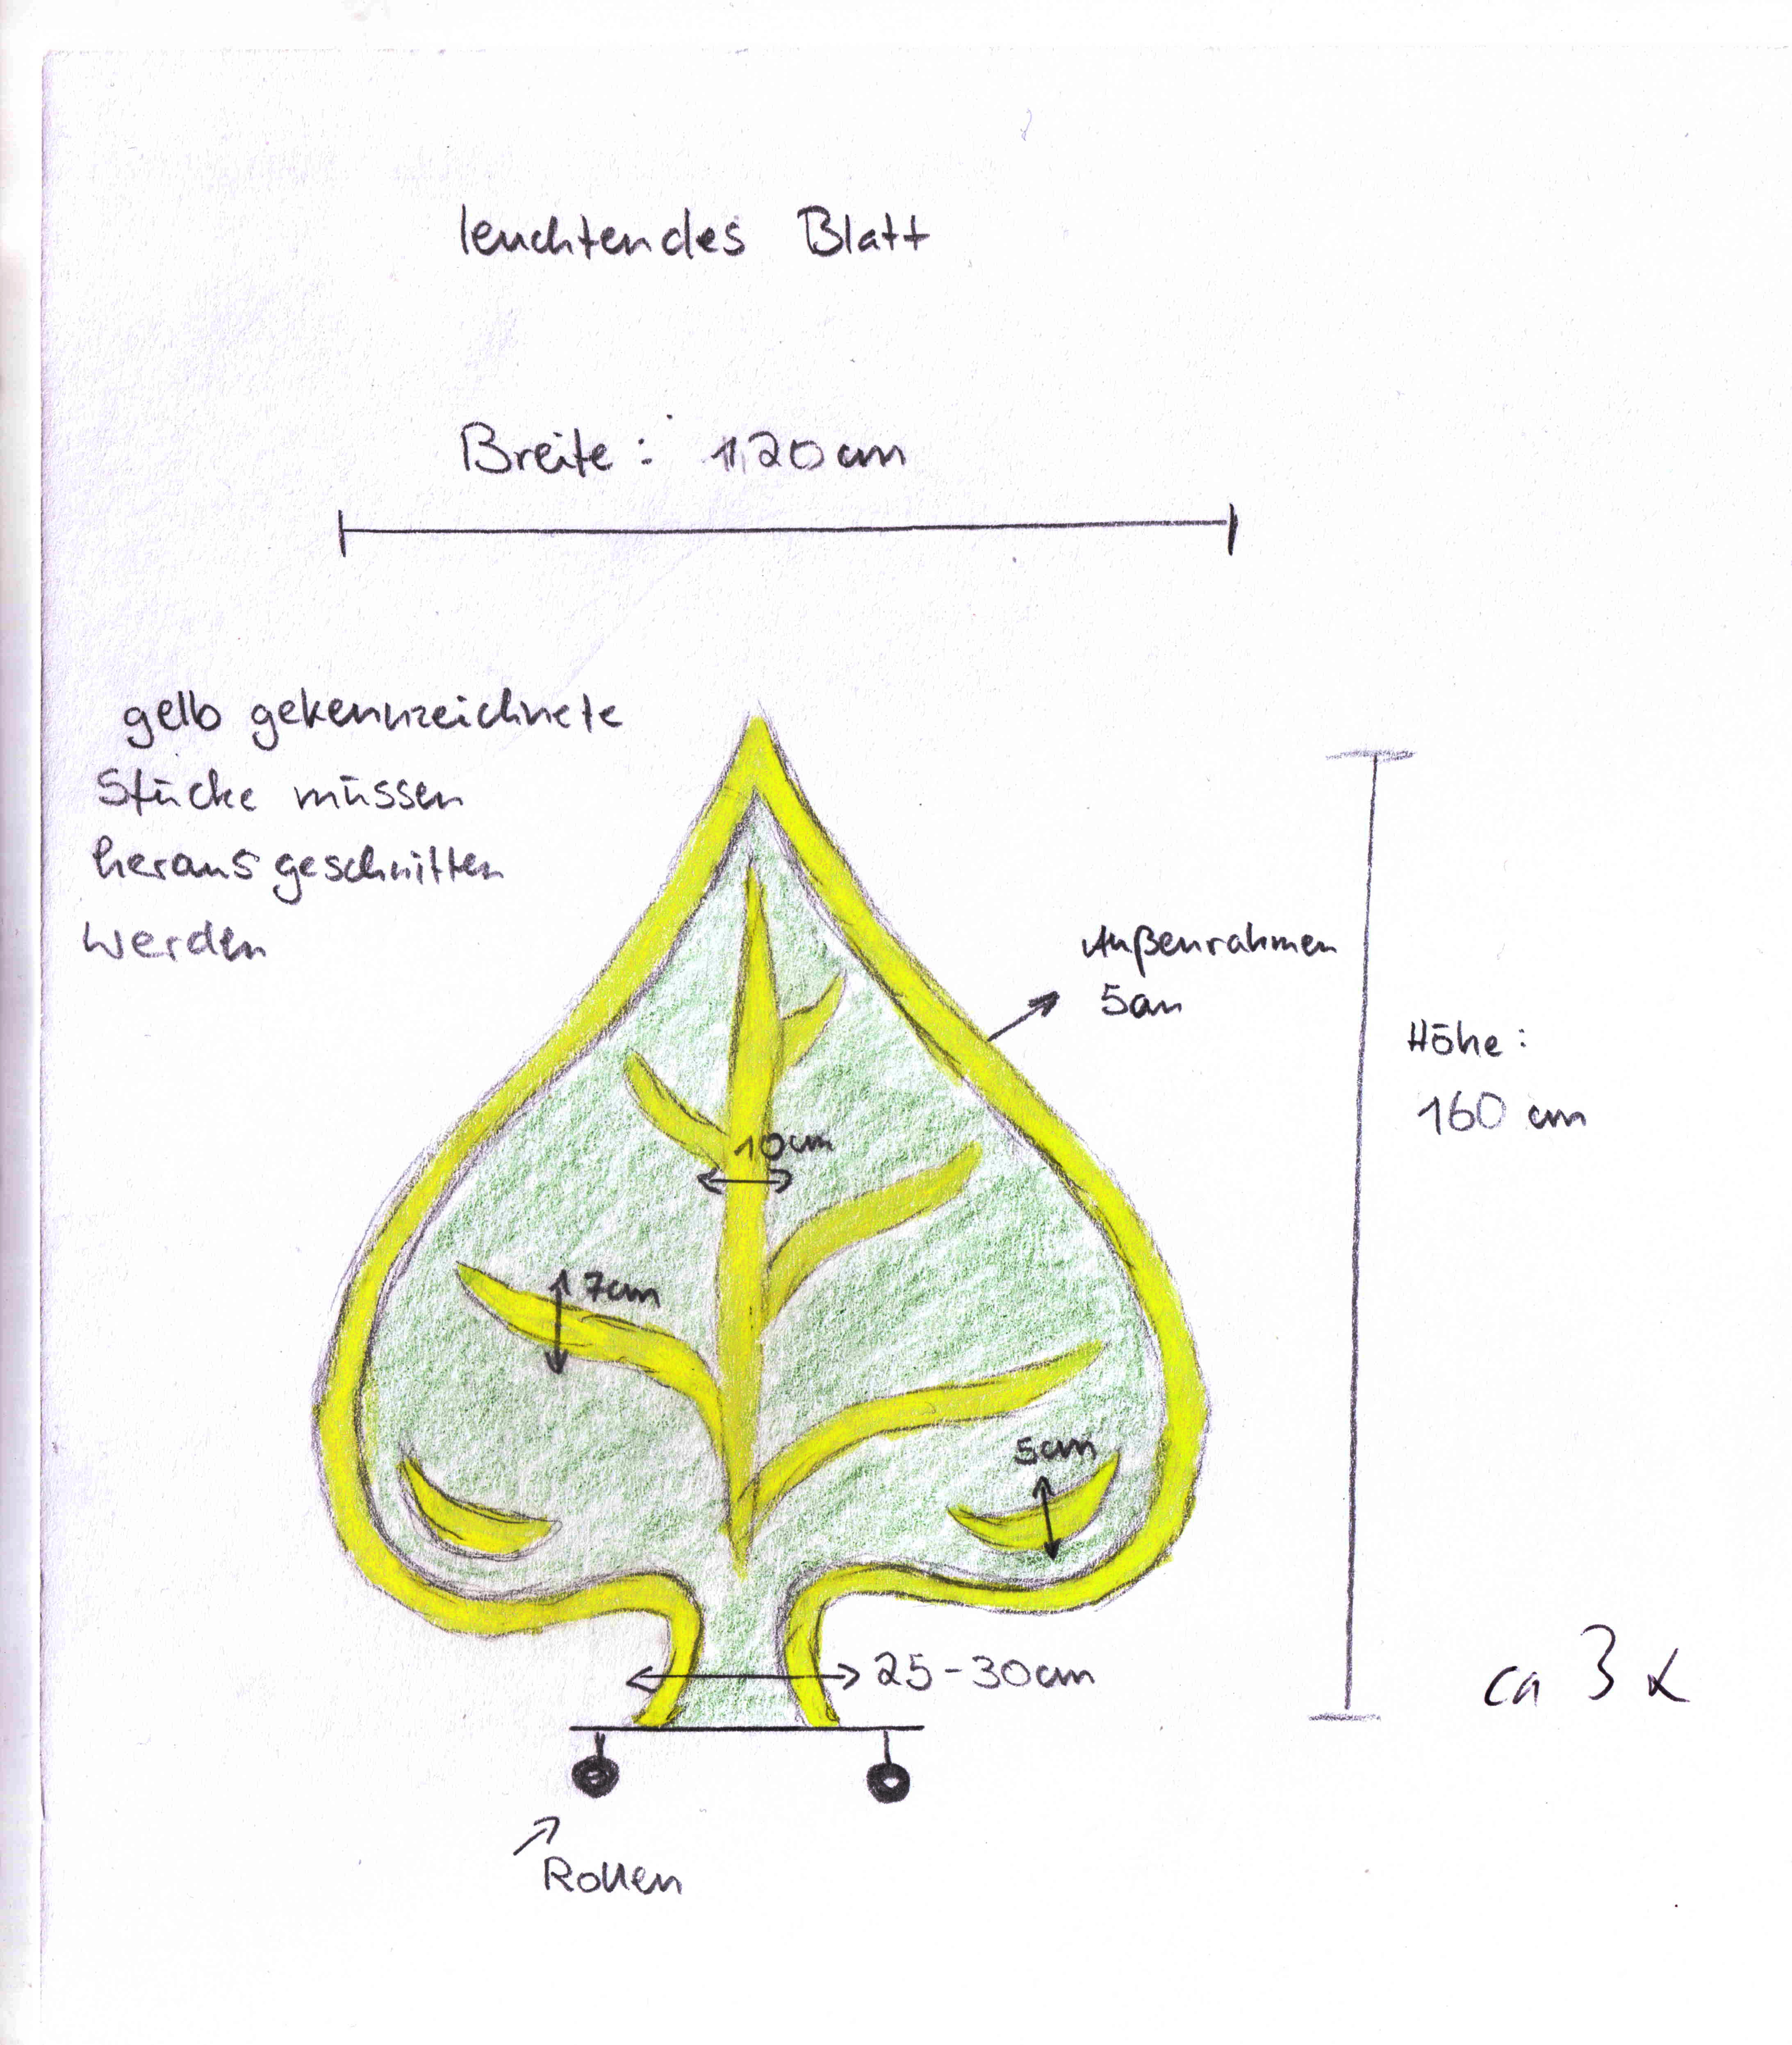 leuchtendes Blatt
Breite: 120cm
gelb gekennzeichnete
Stücke müssen
herausgeschnitten
werden
Außenrahmen
5cm
Höhe:
160 cm
10cm
7cm
5cm
25-30cm
ca 3 x
Rollen